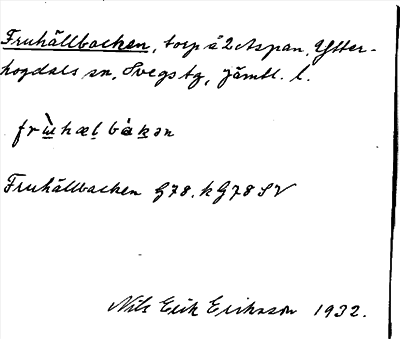 Fruhällbacken, torp å 2 Aspan, Ytter-
hogdals sn, Svegs tg, Jämtl. l.
frùhæl bàkən
Fruhällbacken G78. kG78SV
Nils Erik Eriksson 1932.